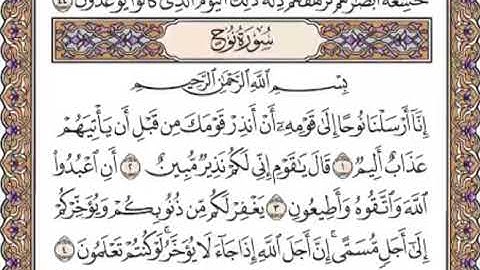 خَٰشِعَةً أَبْصَٰرُهُمْ تَرْهَقُهُمْ ذِلَّةٌ ذَٰلِكَ ٱلْيَوْمُ ٱلَّذِى كَانُوا۟ يُوعَدُونَ ٤٤
سُورَةُ نُوحٍ
بِسْمِ ٱللَّهِ ٱلرَّحْمَٰنِ ٱلرَّحِيمِ
إِنَّآ أَرْسَلْنَا نُوحًا إِلَىٰ قَوْمِهِۦٓ أَنْ أَنذِرْ قَوْمَكَ مِن قَبْلِ أَن يَأْتِيَهُمْ
عَذَابٌ أَلِيمٌ ١ قَالَ يَٰقَوْمِ إِنِّى لَكُمْ نَذِيرٌ مُّبِينٌ ٢ أَنِ ٱعْبُدُوا۟
ٱللَّهَ وَٱتَّقُوهُ وَأَطِيعُونِ ٣ يَغْفِرْ لَكُم مِّن ذُنُوبِكُمْ وَيُؤَخِّرْكُمْ
إِلَىٰٓ أَجَلٍ مُّسَمًّى إِنَّ أَجَلَ ٱللَّهِ إِذَا جَآءَ لَا يُؤَخَّرُ لَوْ كُنتُمْ تَعْلَمُونَ ٤